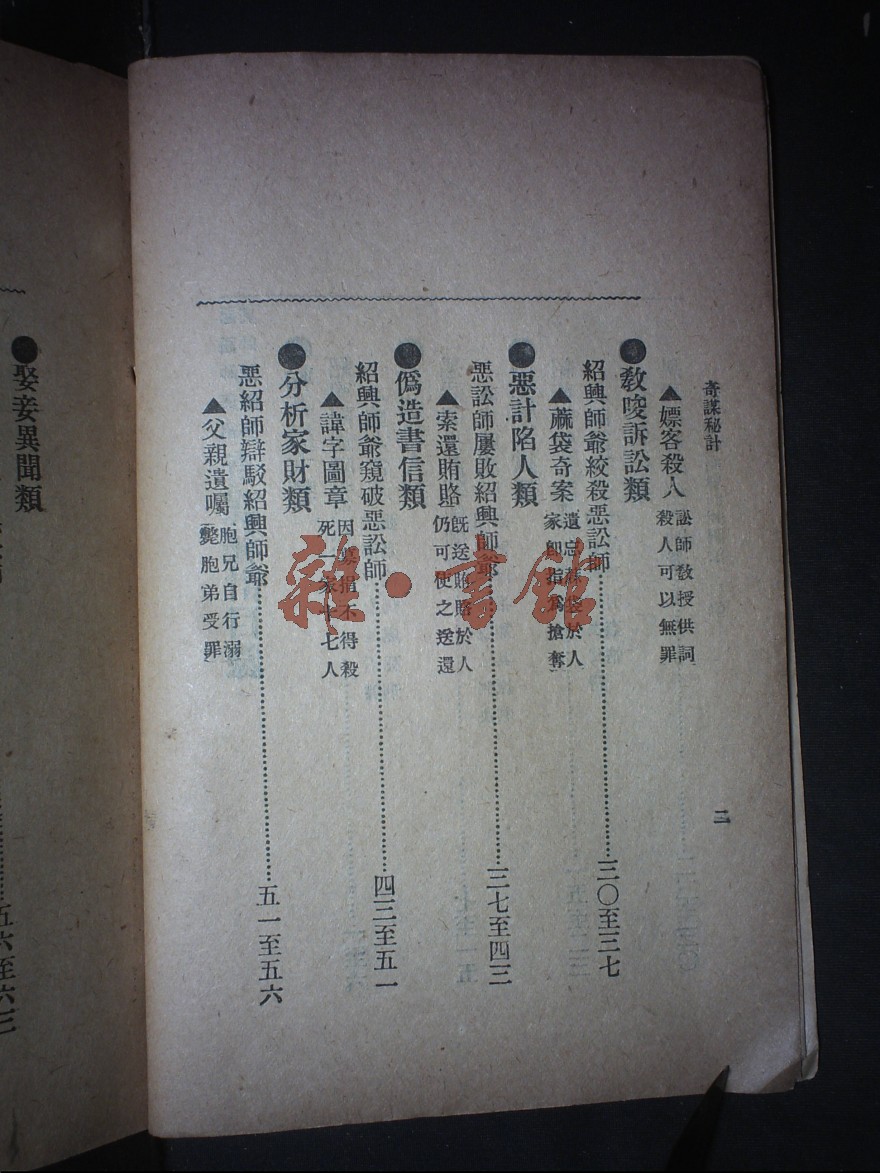 奇謀秘計
二
▲嫖客殺人
訟師教授供詞
殺人可以無罪
●教唆訴訟類
紹興師爺絞殺惡訟師…………三〇至三七
▲蔴袋奇案
遺忘蔴袋於人
家卽指爲搶奪
●惡計陷人類
惡訟師屢敗紹興師爺…………三七至四三
▲索還賄賂
旣送賄賂於人
仍可使之送還
●僞造書信類
紹興師爺窺破惡訟師…………四三至五一
▲諱字圖章
因募捐不得殺
死一家十七人
●分析家財類
惡紹師辯駁紹興師爺…………五一至五六
▲父親遺囑
胞兄自行溺
斃胞弟受罪
●娶妾異聞類
五六至六三
雜·書館